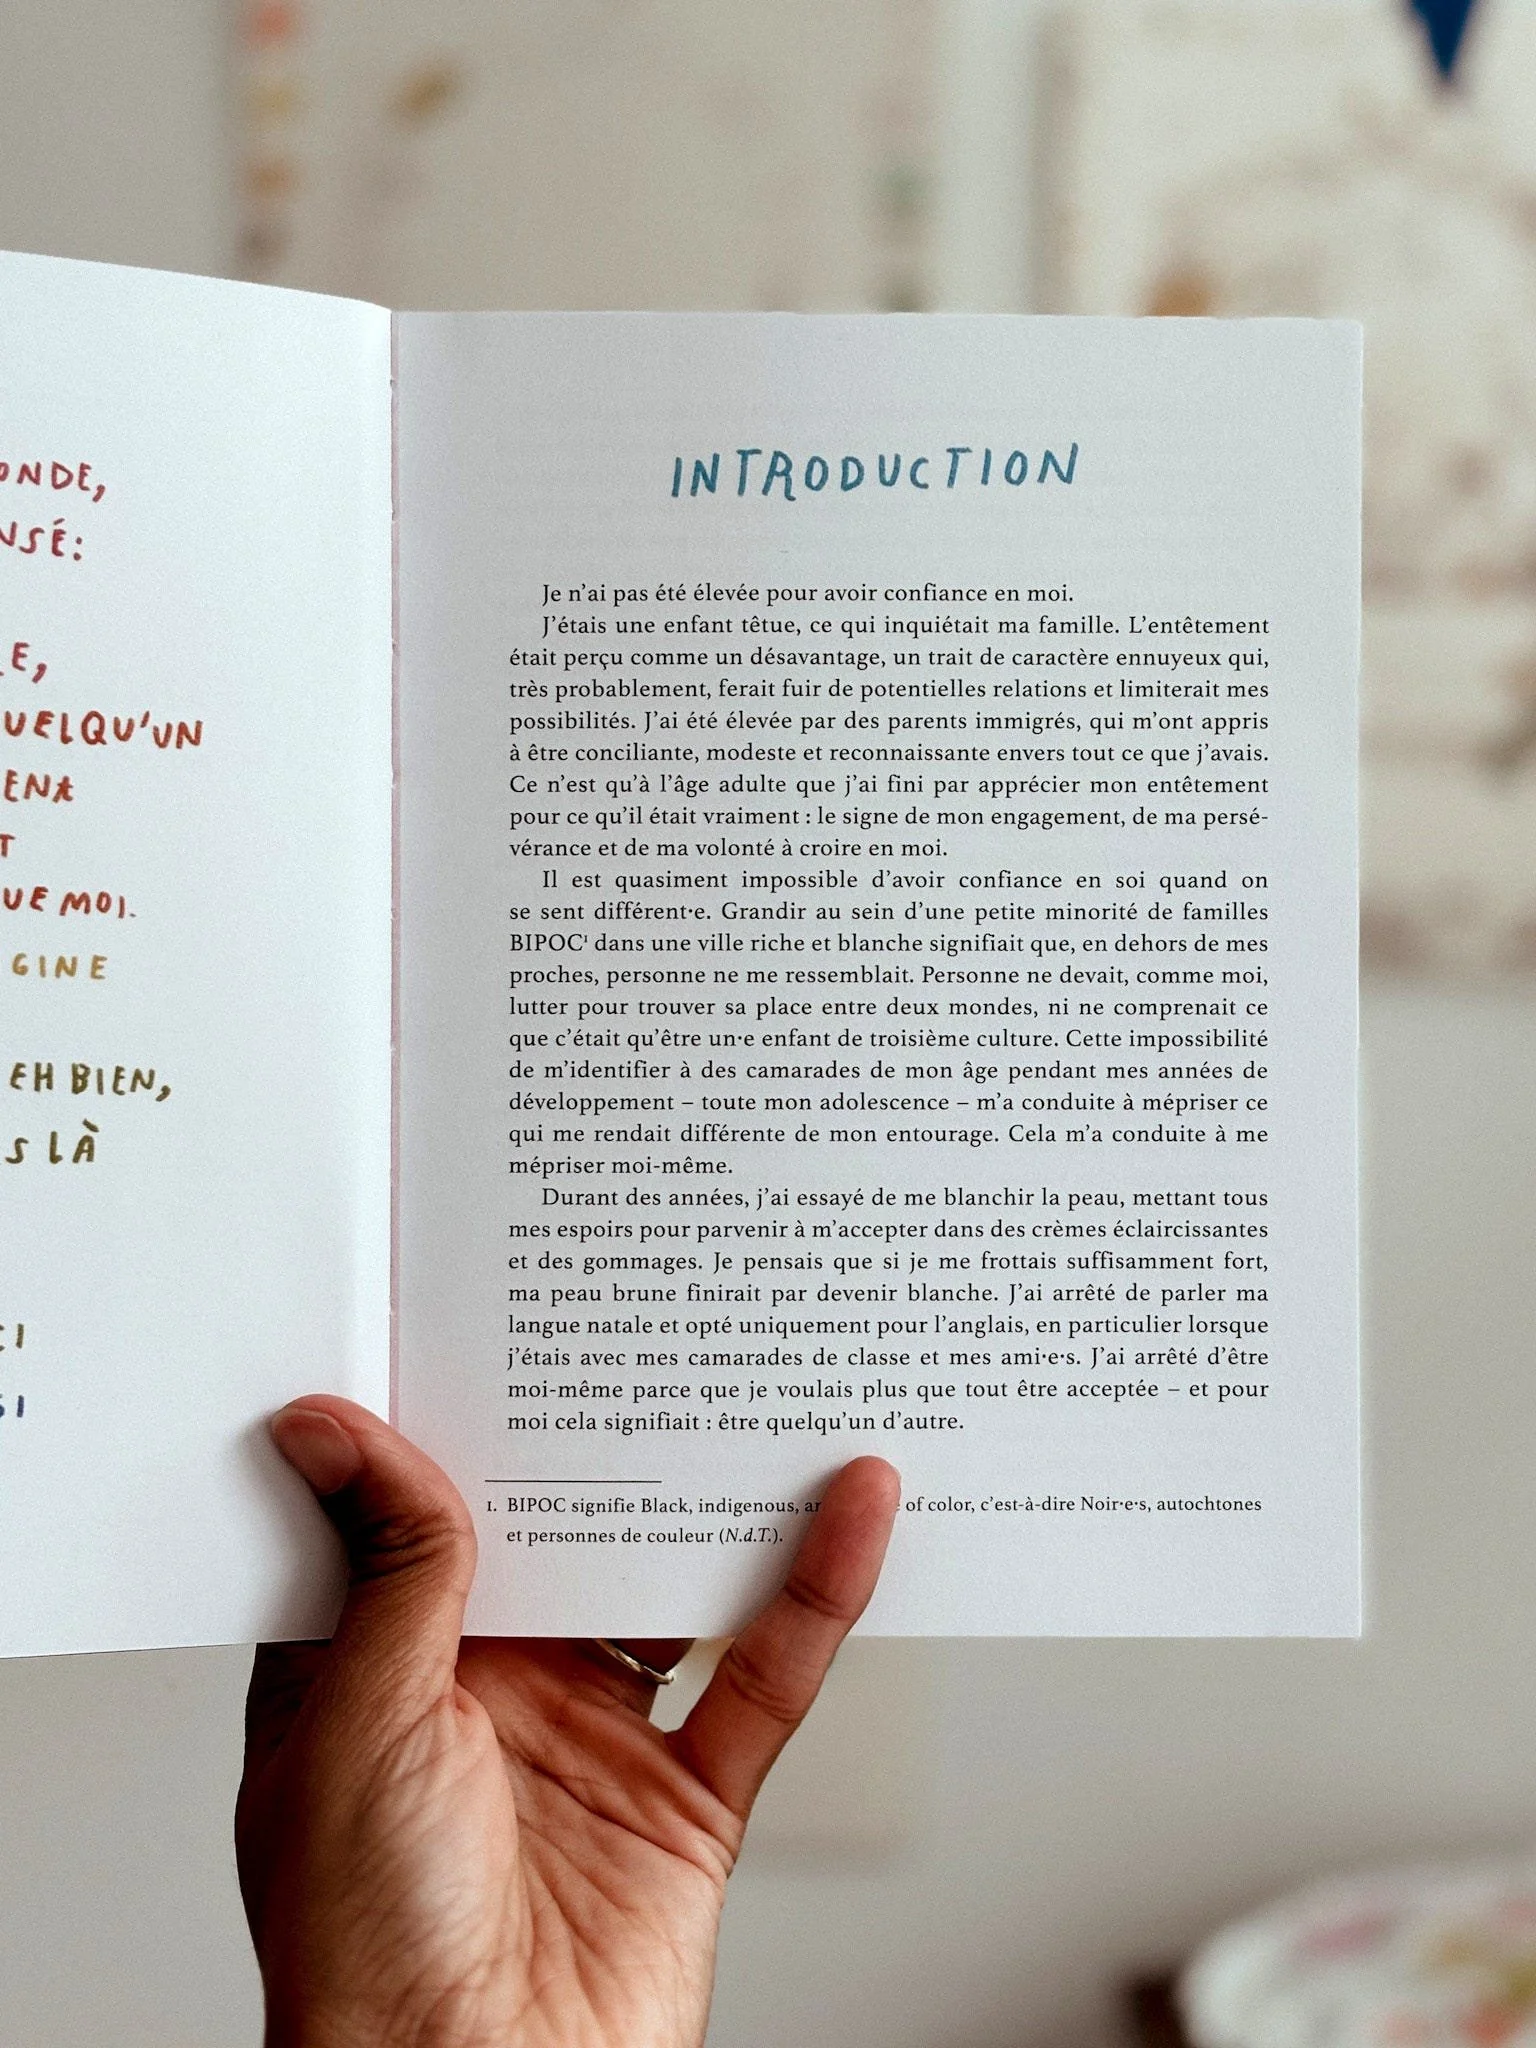 ONDE,
NSÉ:
E,
UELQU'UN
ENT
T
UE MOI.
GINE
EH BIEN,
S LÀ
CI
SI
INTRODUCTION
Je n'ai pas été élevée pour avoir confiance en moi.
J'étais une enfant têtue, ce qui inquiétait ma famille. L'entêtement
était perçu comme un désavantage, un trait de caractère ennuyeux qui,
très probablement, ferait fuir de potentielles relations et limiterait mes
possibilités. J'ai été élevée par des parents immigrés, qui m'ont appris
à être conciliante, modeste et reconnaissante envers tout ce que j'avais.
Ce n'est qu'à l'âge adulte que j'ai fini par apprécier mon entêtement
pour ce qu'il était vraiment : le signe de mon engagement, de ma persé-
vérance et de ma volonté à croire en moi.
Il est quasiment impossible d'avoir confiance en soi quand on
se sent différent·e. Grandir au sein d'une petite minorité de familles
BIPOC¹ dans une ville riche et blanche signifiait que, en dehors de mes
proches, personne ne me ressemblait. Personne ne devait, comme moi,
lutter pour trouver sa place entre deux mondes, ni ne comprenait ce
que c'était qu'être un·e enfant de troisième culture. Cette impossibilité
de m'identifier à des camarades de mon âge pendant mes années de
développement – toute mon adolescence – m'a conduite à mépriser ce
qui me rendait différente de mon entourage. Cela m'a conduite à me
mépriser moi-même.
Durant des années, j'ai essayé de me blanchir la peau, mettant tous
mes espoirs pour parvenir à m'accepter dans des crèmes éclaircissantes
et des gommages. Je pensais que si je me frottais suffisamment fort,
ma peau brune finirait par devenir blanche. J'ai arrêté de parler ma
langue natale et opté uniquement pour l'anglais, en particulier lorsque
j'étais avec mes camarades de classe et mes ami·e·s. J'ai arrêté d'être
moi-même parce que je voulais plus que tout être acceptée – et pour
moi cela signifiait : être quelqu'un d'autre.
1. BIPOC signifie Black, indigenous, of color, c'est-à-dire Noir·e·s, autochtones
et personnes de couleur (N.d.T.).